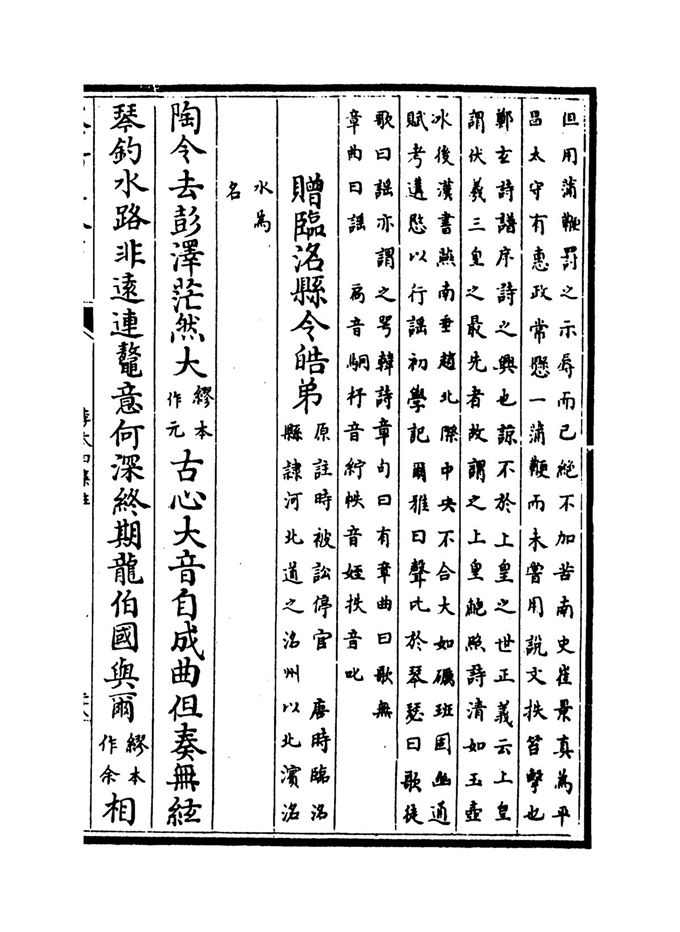 但用蒲鞭罰之示辱而已絶不加苦南史崔景真為平
昌太守有惠政常懸一蒲鞭而未嘗用說文抶笞擊也
鄭玄詩譜序詩之興也諒不於上皇之世正義云上皇
謂伏羲三皇之最先者故謂之上皇鮑照詩清如玉壺
冰後漢書燕南垂趙北際中央不合大如礪班固幽通
賦考遘愍以行謡初學記爾雅曰聲比於琴瑟曰歌徒
歌曰謡亦謂之咢韓詩章句曰有章曲曰歌無
章曲曰謡　扃音駉杼音紵帙音姪抶音叱
贈臨洺縣令皓弟
原註時被訟停官　唐時臨洺
縣隷河北道之洺州以北濱洺
水為
名
陶令去彭澤茫然大繆本作元古心大音自成曲但奏無絃
琴釣水路非遠連鼇意何深終期龍伯國與爾繆本作余相